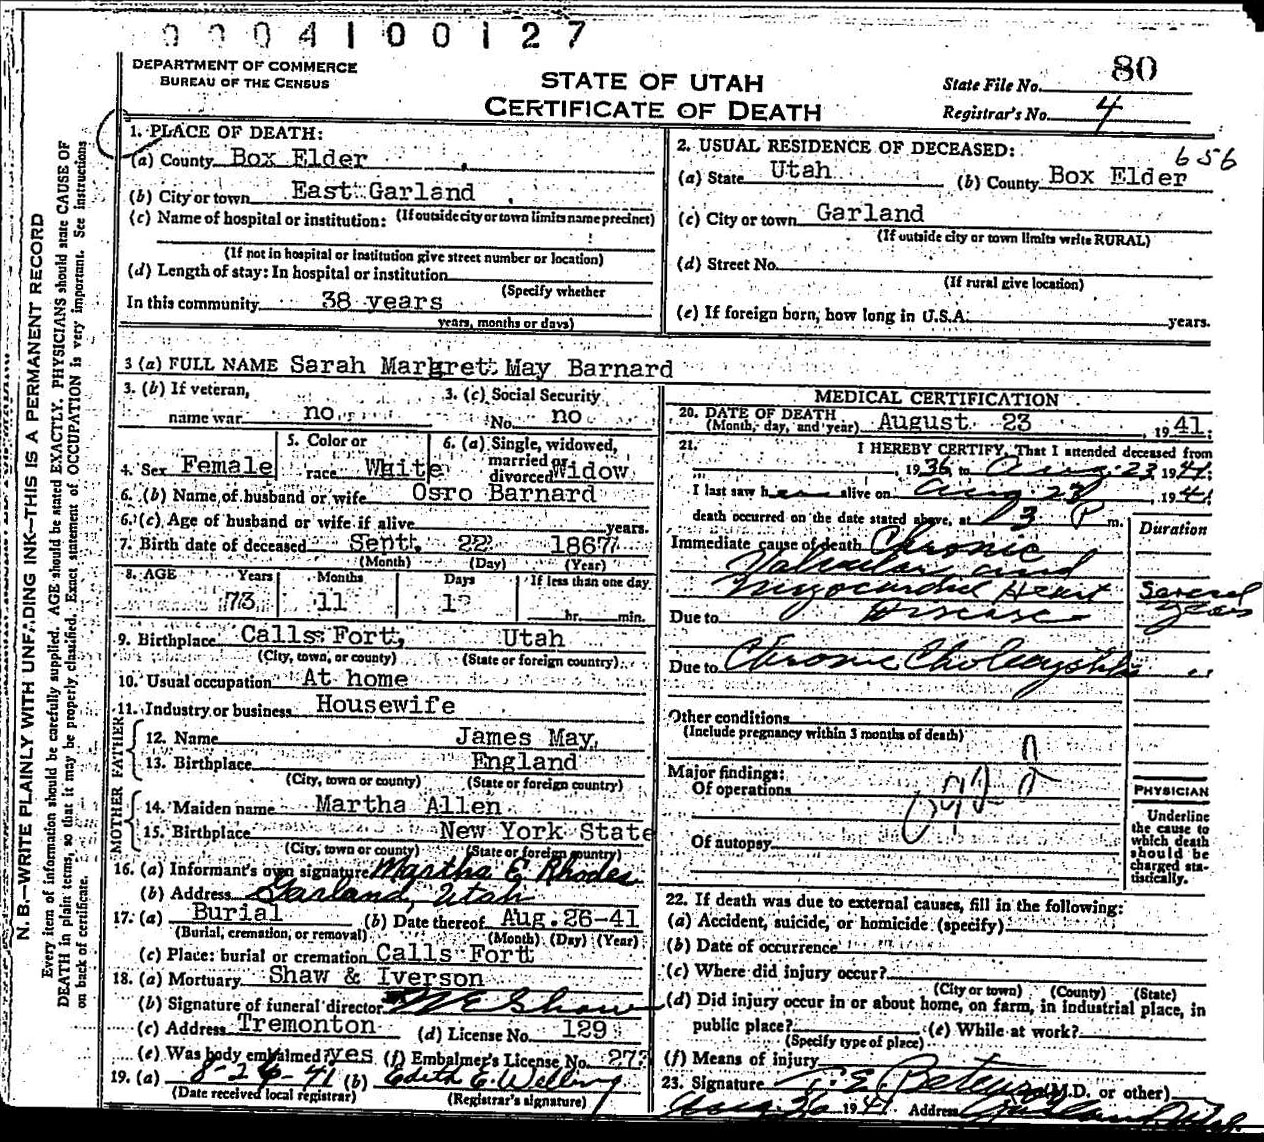 0004100127
DEPARTMENT OF COMMERCE
BUREAU OF THE CENSUS
STATE OF UTAH
CERTIFICATE OF DEATH
State File No. 80
Registrar's No. 4
N. B.—WRITE PLAINLY WITH UNFADING INK—THIS IS A PERMANENT RECORD
Every item of information should be carefully supplied. AGE should be stated EXACTLY. PHYSICIANS should state CAUSE OF
DEATH in plain terms, so that it may be properly classified. Exact statement of OCCUPATION is very important. See instructions
on back of certificate.
1. PLACE OF DEATH:
(a) County Box Elder
(b) City or town East Garland
(c) Name of hospital or institution: (If outside city or town limits name precinct)
(If not in hospital or institution give street number or location)
(d) Length of stay: In hospital or institution
(Specify whether
In this community 38 years
years, months or days)
2. USUAL RESIDENCE OF DECEASED:
656
(a) State Utah (b) County Box Elder
(c) City or town Garland
(If outside city or town limits write RURAL)
(d) Street No.
(If rural give location)
(e) If foreign born, how long in U.S.A. years.
3 (a) FULL NAME Sarah Margrett May Barnard
3. (b) If veteran,
name war no
3. (c) Social Security
No. no
4. Sex Female
5. Color or
race White
6. (a) Single, widowed,
married or
divorced Widow
6. (b) Name of husband or wife Osro Barnard
6. (c) Age of husband or wife if alive years.
7. Birth date of deceased Sept. 22 1867
(Month) (Day) (Year)
8. AGE Years Months Days If less than one day
73 11 hr. min.
9. Birthplace Calls Fort, Utah
(City, town, or county) (State or foreign country)
10. Usual occupation At home
11. Industry or business Housewife
FATHER
12. Name James May,
13. Birthplace England
(City, town or county) (State or foreign country)
MOTHER
14. Maiden name Martha Allen
15. Birthplace New York State
(City, town or county) (State or foreign country)
16. (a) Informant's own signature Martha E Rhodes
(b) Address Garland, Utah
17. (a) Burial (b) Date thereof Aug. 26-41
(Burial, cremation, or removal) (Month) (Day) (Year)
(c) Place: burial or cremation Calls Fort
18. (a) Mortuary Shaw & Iverson
(b) Signature of funeral director Shaw
(c) Address Tremonton (d) License No. 129
(e) Was body embalmed? yes (f) Embalmer's License No. 273
19. (a) 8-26-41 (b) Edith E. Welling
(Date received local registrar) (Registrar's signature)
MEDICAL CERTIFICATION
20. DATE OF DEATH
(Month, day, and year) August 23, 1941;
21. I HEREBY CERTIFY, That I attended deceased from
1936 to Aug. 23 1941.
I last saw her alive on Aug 23 1941.
death occurred on the date stated above, at 3 P m.
Duration
Immediate cause of death Chronic
Valvular and
Myocardial Heart Several
Due to Disease years
Due to Chronic Cholecystitis "
Other conditions
(Include pregnancy within 3 months of death)
Major findings:
Of operations
Of autopsy
PHYSICIAN
Underline
the cause to
which death
should be
charged sta-
tistically.
22. If death was due to external causes, fill in the following:
(a) Accident, suicide, or homicide (specify)
(b) Date of occurrence
(c) Where did injury occur?
(City or town) (County) (State)
(d) Did injury occur in or about home, on farm, in industrial place, in
public place? (e) While at work?
(Specify type of place)
(f) Means of injury
23. Signature (M.D. or other)
Aug. 26 1941 Address Garland, Utah.